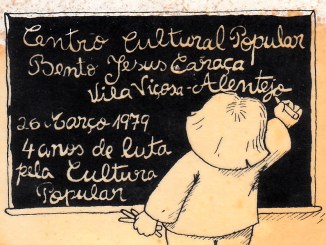 Centro Cultural Popular
Bento Jesus Caraça
Vila Viçosa-Alentejo
26 Março 1979
4 anos de luta
pela Cultura
Popular